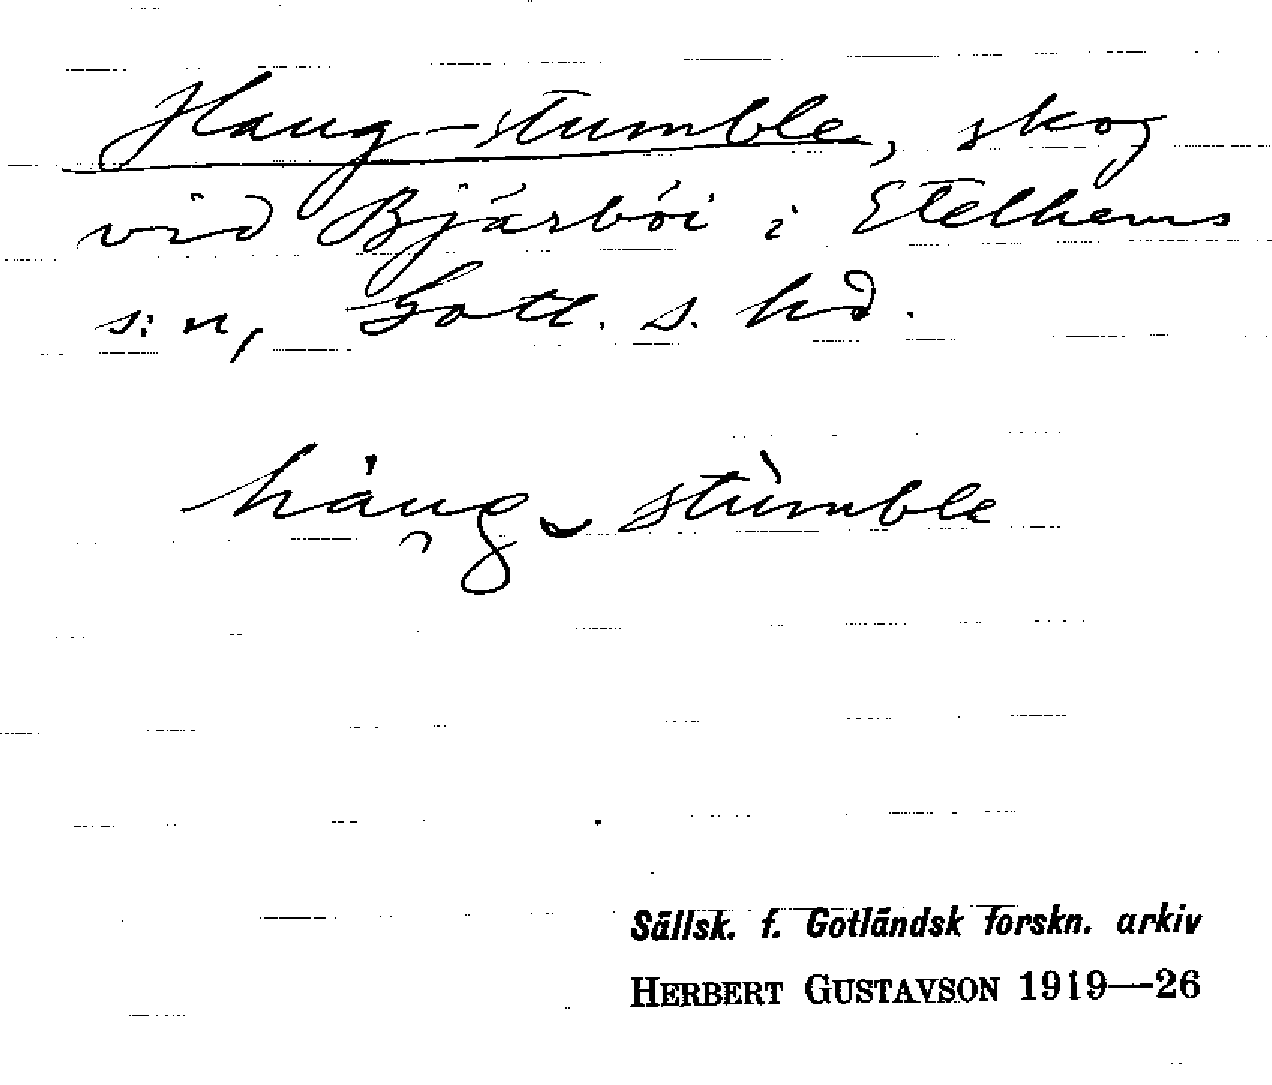 Haug-stumble, skog
vid Bjärbói i Etelhems
s:n, Gotl. s. hd.
háu̯g ̮ stùmble
Sällsk. f. Gotländsk forskn. arkiv
HERBERT GUSTAVSON 1919—26